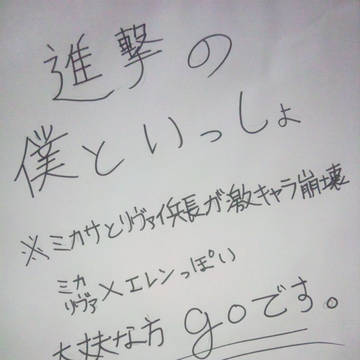 進撃の
僕といっしょ
※ミカサとリヴァイ兵長が激キャラ崩壊
ミカ
リヴァ×エレンっぽい
大丈夫な方goです。